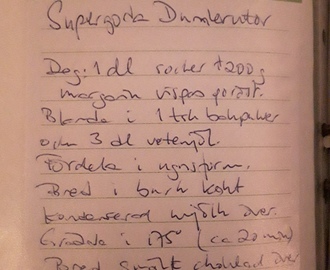 Supergoda Dumlerutor
Deg: 1 dl socker + 200 g
margarin vispas poröst.
Blanda i 1 tsk bakpulver
och 3 dl vetemjöl.
Fördela i ugnsform.
Bred i burk kokt
kondenserad mjölk över.
Grädda i 175° (ca 20 min)
Bred smält choklad över